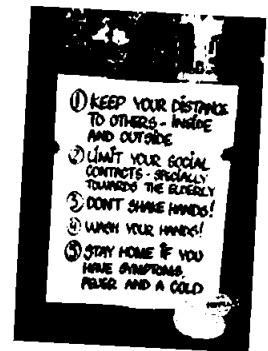 ① KEEP YOUR DISTANCE
TO OTHERS - INSIDE
AND OUTSIDE
② LIMIT YOUR SOCIAL
CONTACTS - SPECIALLY
TOWARDS THE ELDERLY
③ DON'T SHAKE HANDS!
④ WASH YOUR HANDS!
⑤ STAY HOME IF YOU
HAVE SYMPTOMS,
FEVER AND A COLD